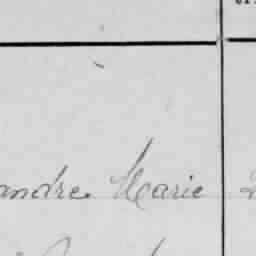 andre Marie